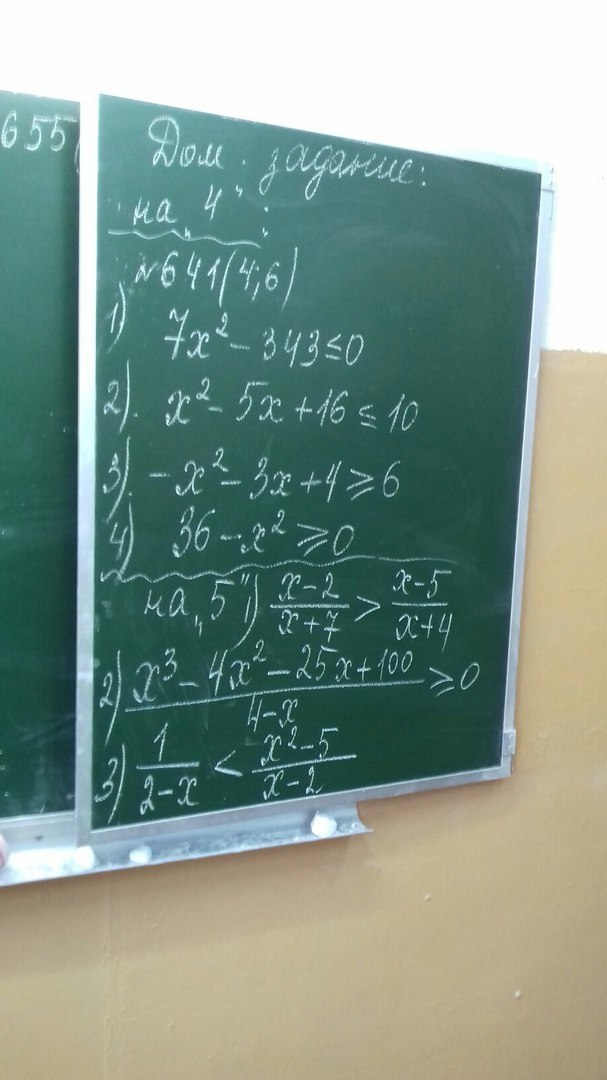 655
Дом. задание:
на „4":
№641(4;6)
1) 7x² - 343 ≤ 0
2). x² - 5x + 16 ≤ 10
3). -x² - 3x + 4 ≥ 6
4) 36 - x² ≥ 0
на „5" 1) (x-2)/(x+7) > (x-5)/(x+4)
2) (x³ - 4x² - 25x + 100)/(4-x) ≥ 0
3) 1/(2-x) < (x²-5)/(x-2)